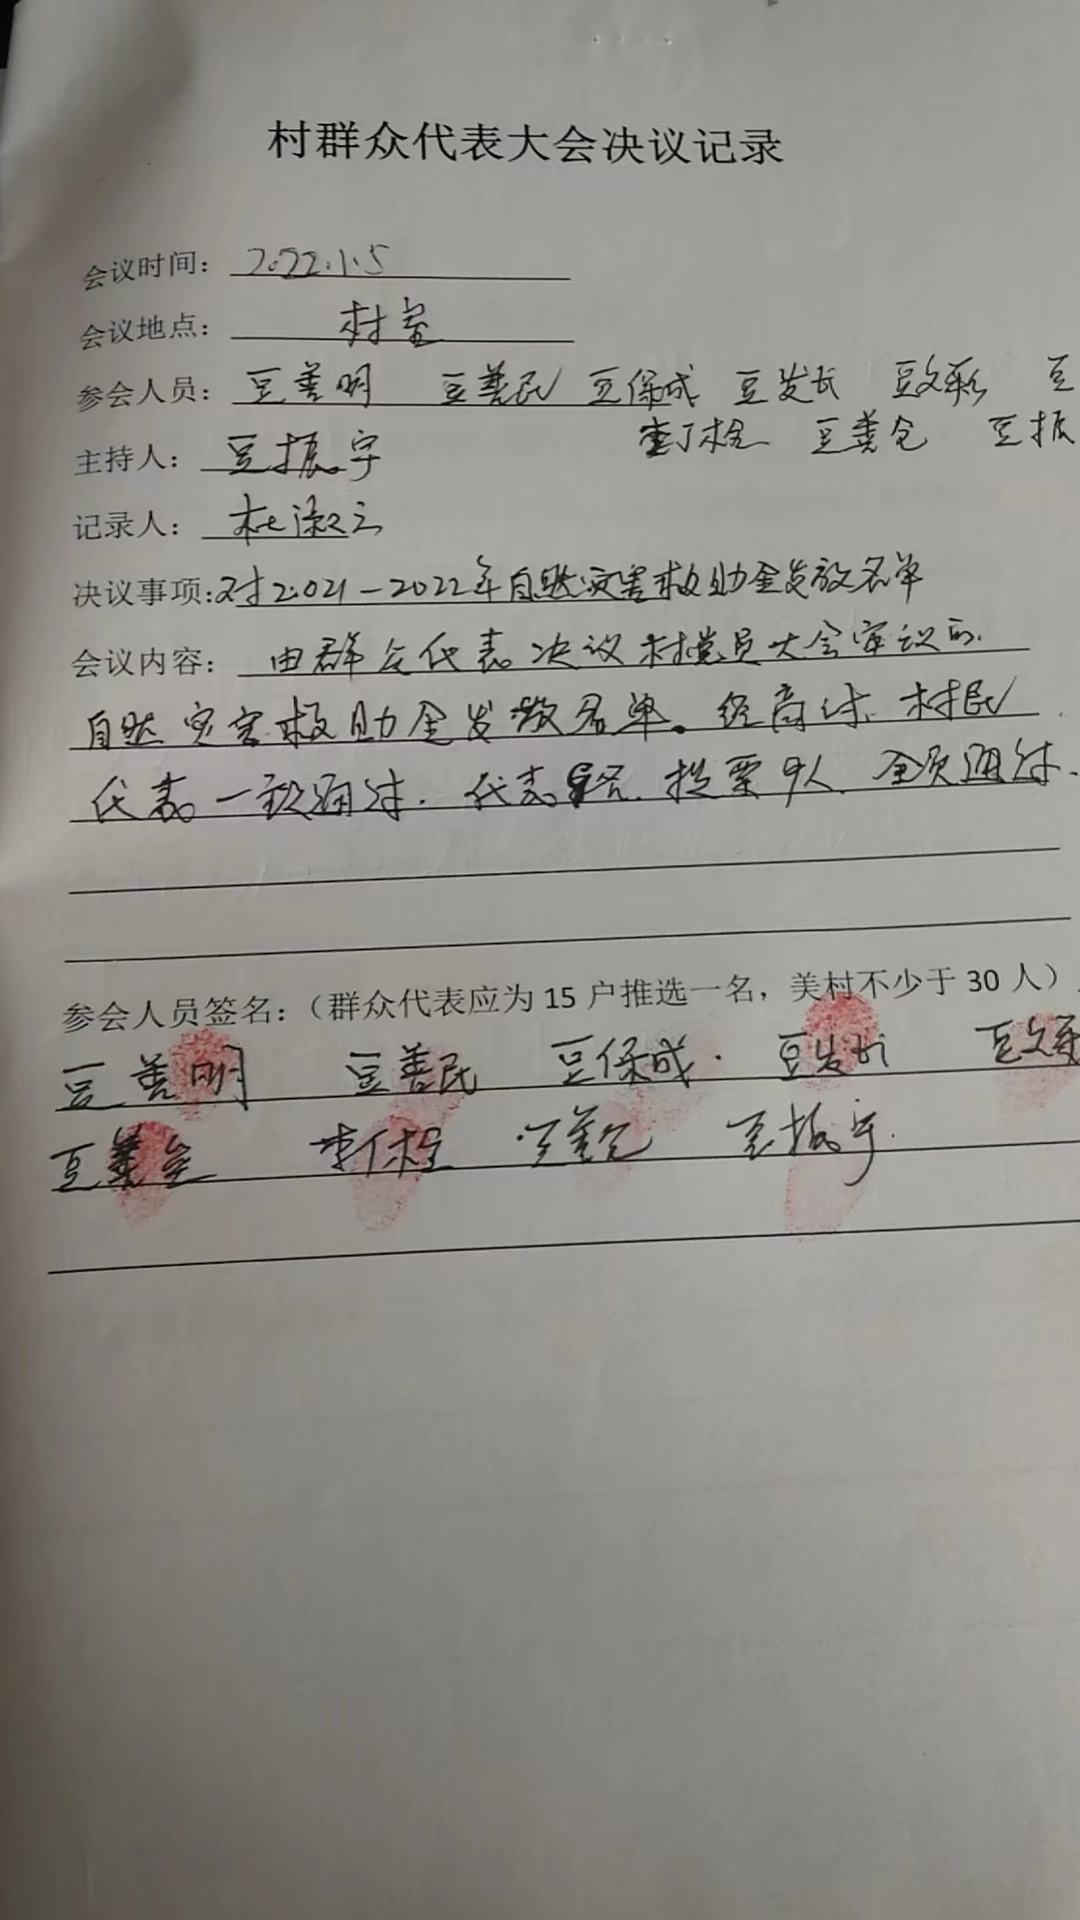 村群众代表大会决议记录
会议时间： 2022.1.5
会议地点： 村室
参会人员： 豆善明 豆善民 豆保成 豆发长 豆文彩 豆
豆善仓 豆振
主持人： 豆振宇
记录人： 杜淑云
决议事项:对2021－2022年自然灾害救助金发放名单
会议内容： 由群众代表决议村党员大会审议的
自然灾害救助金发放名单。经商讨.村民
代表一致通过. 代表9名. 投票9人. 全员通过.
参会人员签名：（群众代表应为 15 户推选一名，美村不少于 30 人）
豆善明 豆善民 豆保成. 豆发长 豆文彩
豆善 豆振宇.